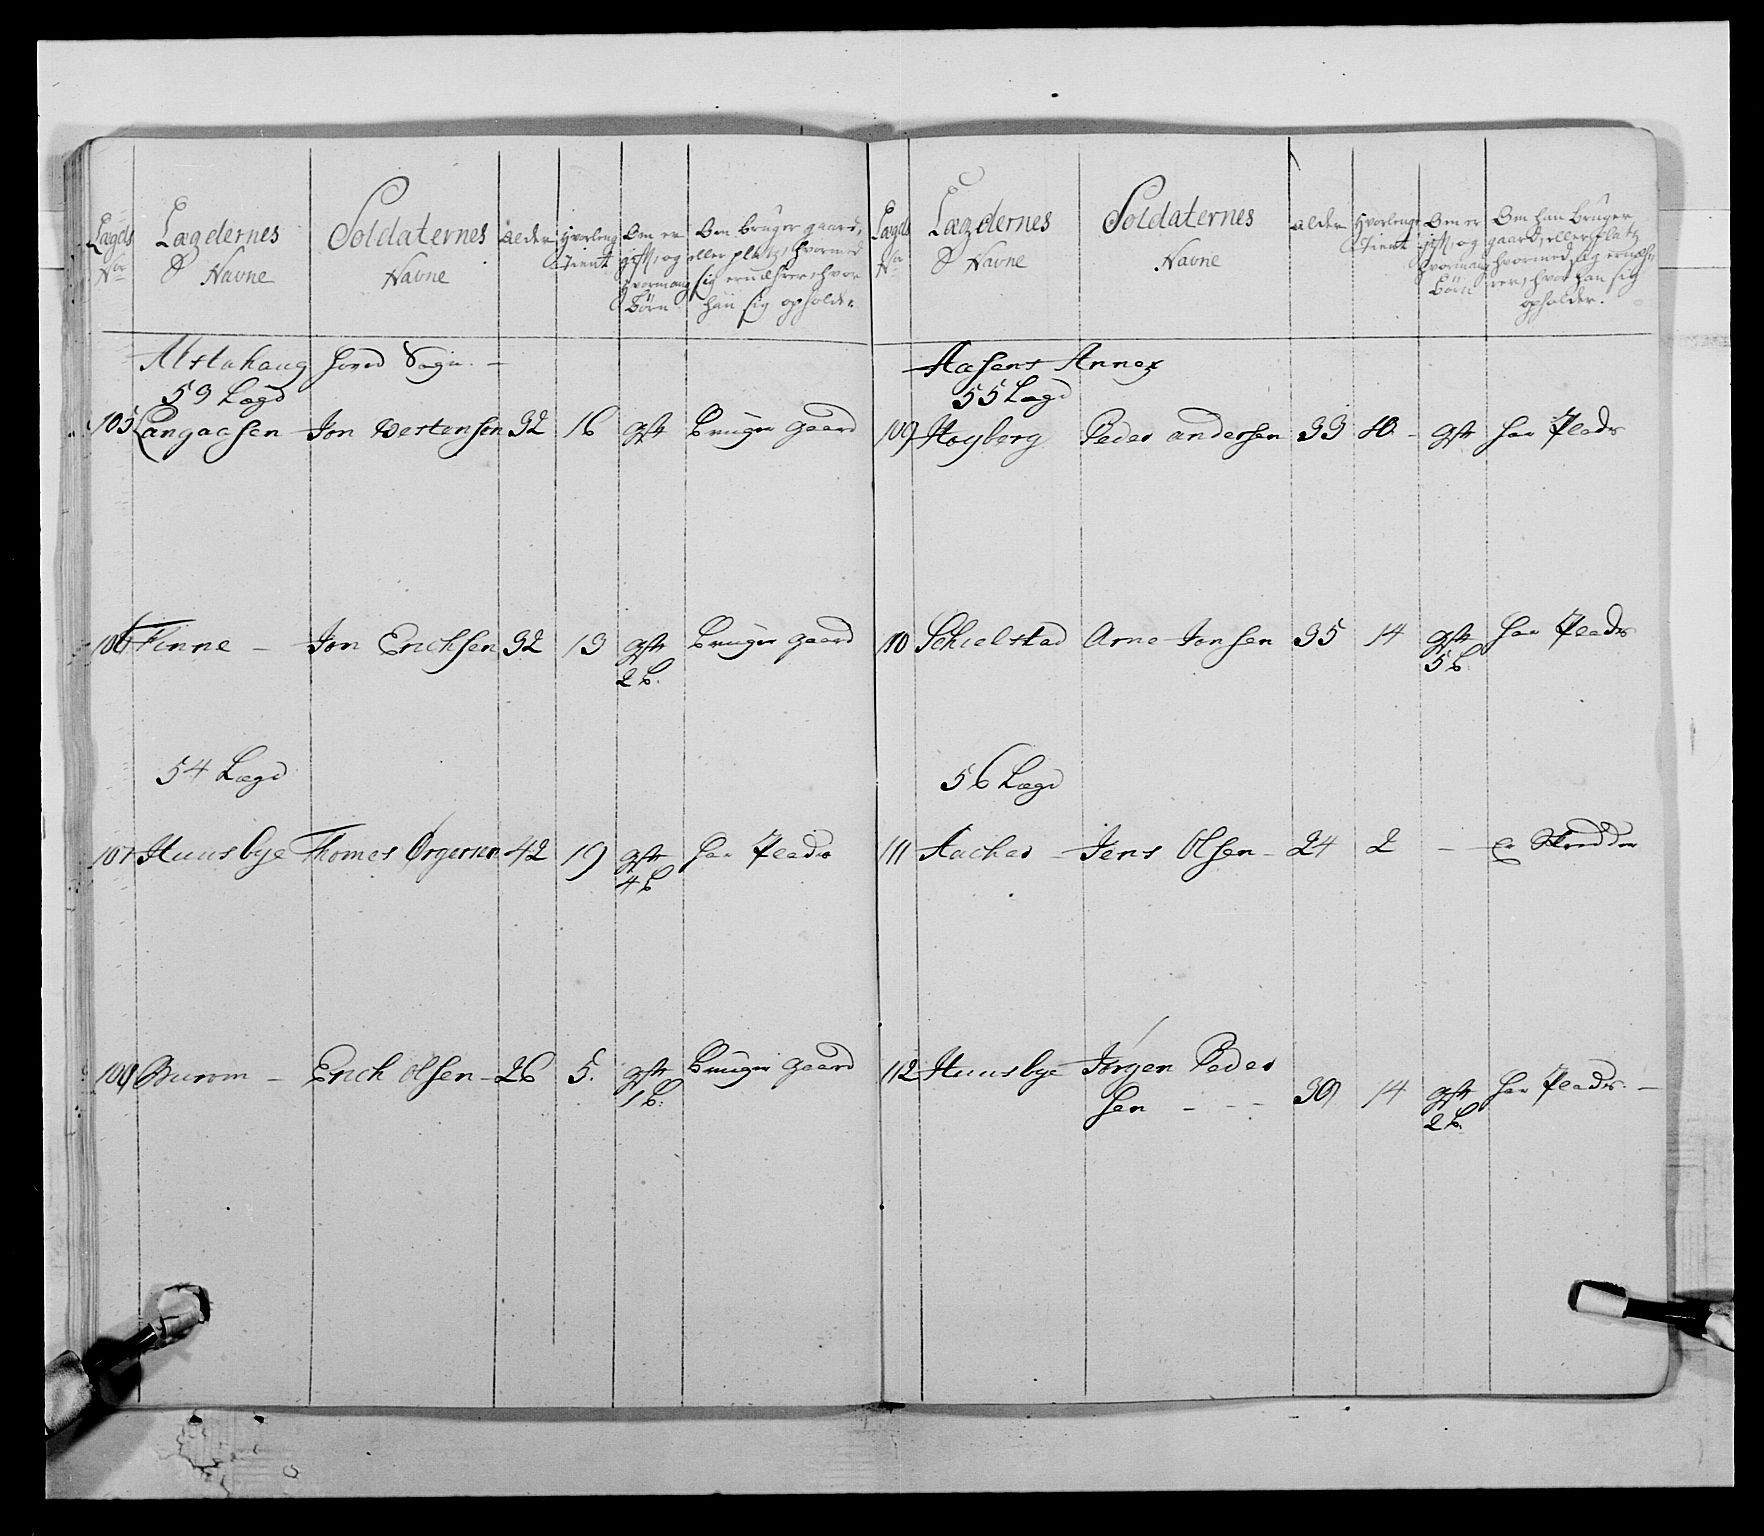 Lægds Nr
Lægdernes Navne
Soldaternes Navne
Alder
Hvorleng Tient
Om er gift, og hvormang Börn
Om Bruger gaard, eller platz, hvormed sig ernæhrer, hvor han sig opholder
Alstahaug Hoved Sogn. –
53 Lægd
105 Langaasen Jon Vestensen 32 16 gift Bruger gaard
106 Finne – Jon Erichsen 32 13 gift 2 b. Bruger gaard
54 Lægd
107 Huusbye Thomes Ørgersen 42 19 gift 4 b har Plads
108 Buran – Erich Olsen – 26 5. gift 1 b. Bruger gaard
Lægds Nr
Lægdernes Navne
Soldaternes Navne
Alder
Hvorlenge Tient
Om er gift, og hvormang Börn
Om han Bruger gaard, eller platz hvormed sig ernæhrer, hvor han sig opholder.
Aasens Annex
55 Lægd
109 Høyberg Peder Andersen 33 10 – gift har Plads
110 Schielstad Arne Jonsen 35 14 gift 5 b har Plads
56 Lægd
111 Aacher – Jens Olsen – 24 2 – Er Skredder
112 Huusbye Jörgen Peder
sen – – – 39 14 gift 2 b. har Plads. –